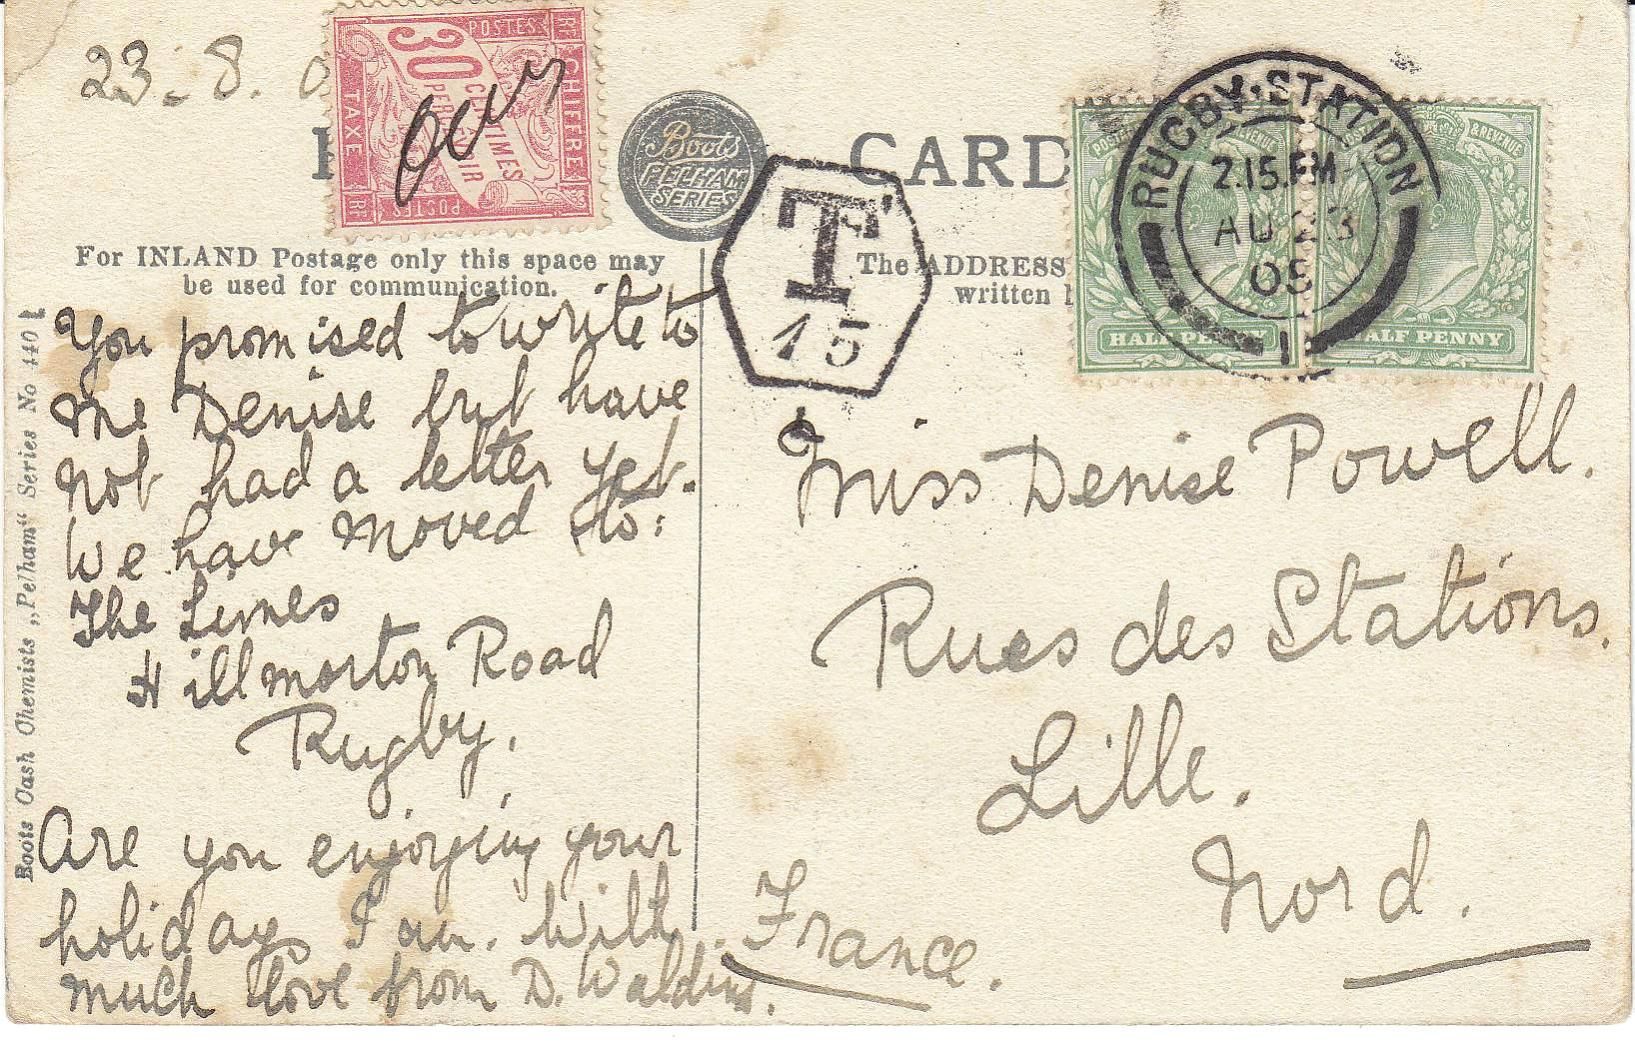 23-8.
POSTES
CHIFFRE
TAXE
30
CENTIMES
À
PERCEVOIR
POSTES
Boots
PELHAM
SERIES
CARD
T
15
RUGBY·STATION
2.15.PM
AU 23
1
POSTAGE & REVENUE
HALF PENNY
HALF PENNY
For INLAND Postage only this space may
be used for communication.
The ADDRESS
written
Boots Cash Chemists „Pelham“ Series No 440
You promised to write to
me Denise but have
not had a letter yet.
We have moved to:
The Limes
Hillmorton Road
Rugby.
Are you enjoying your
holiday, I am. With
much love from D.
Miss Denise Powell.
Rues des Stations.
Lille.
Nord.
France.